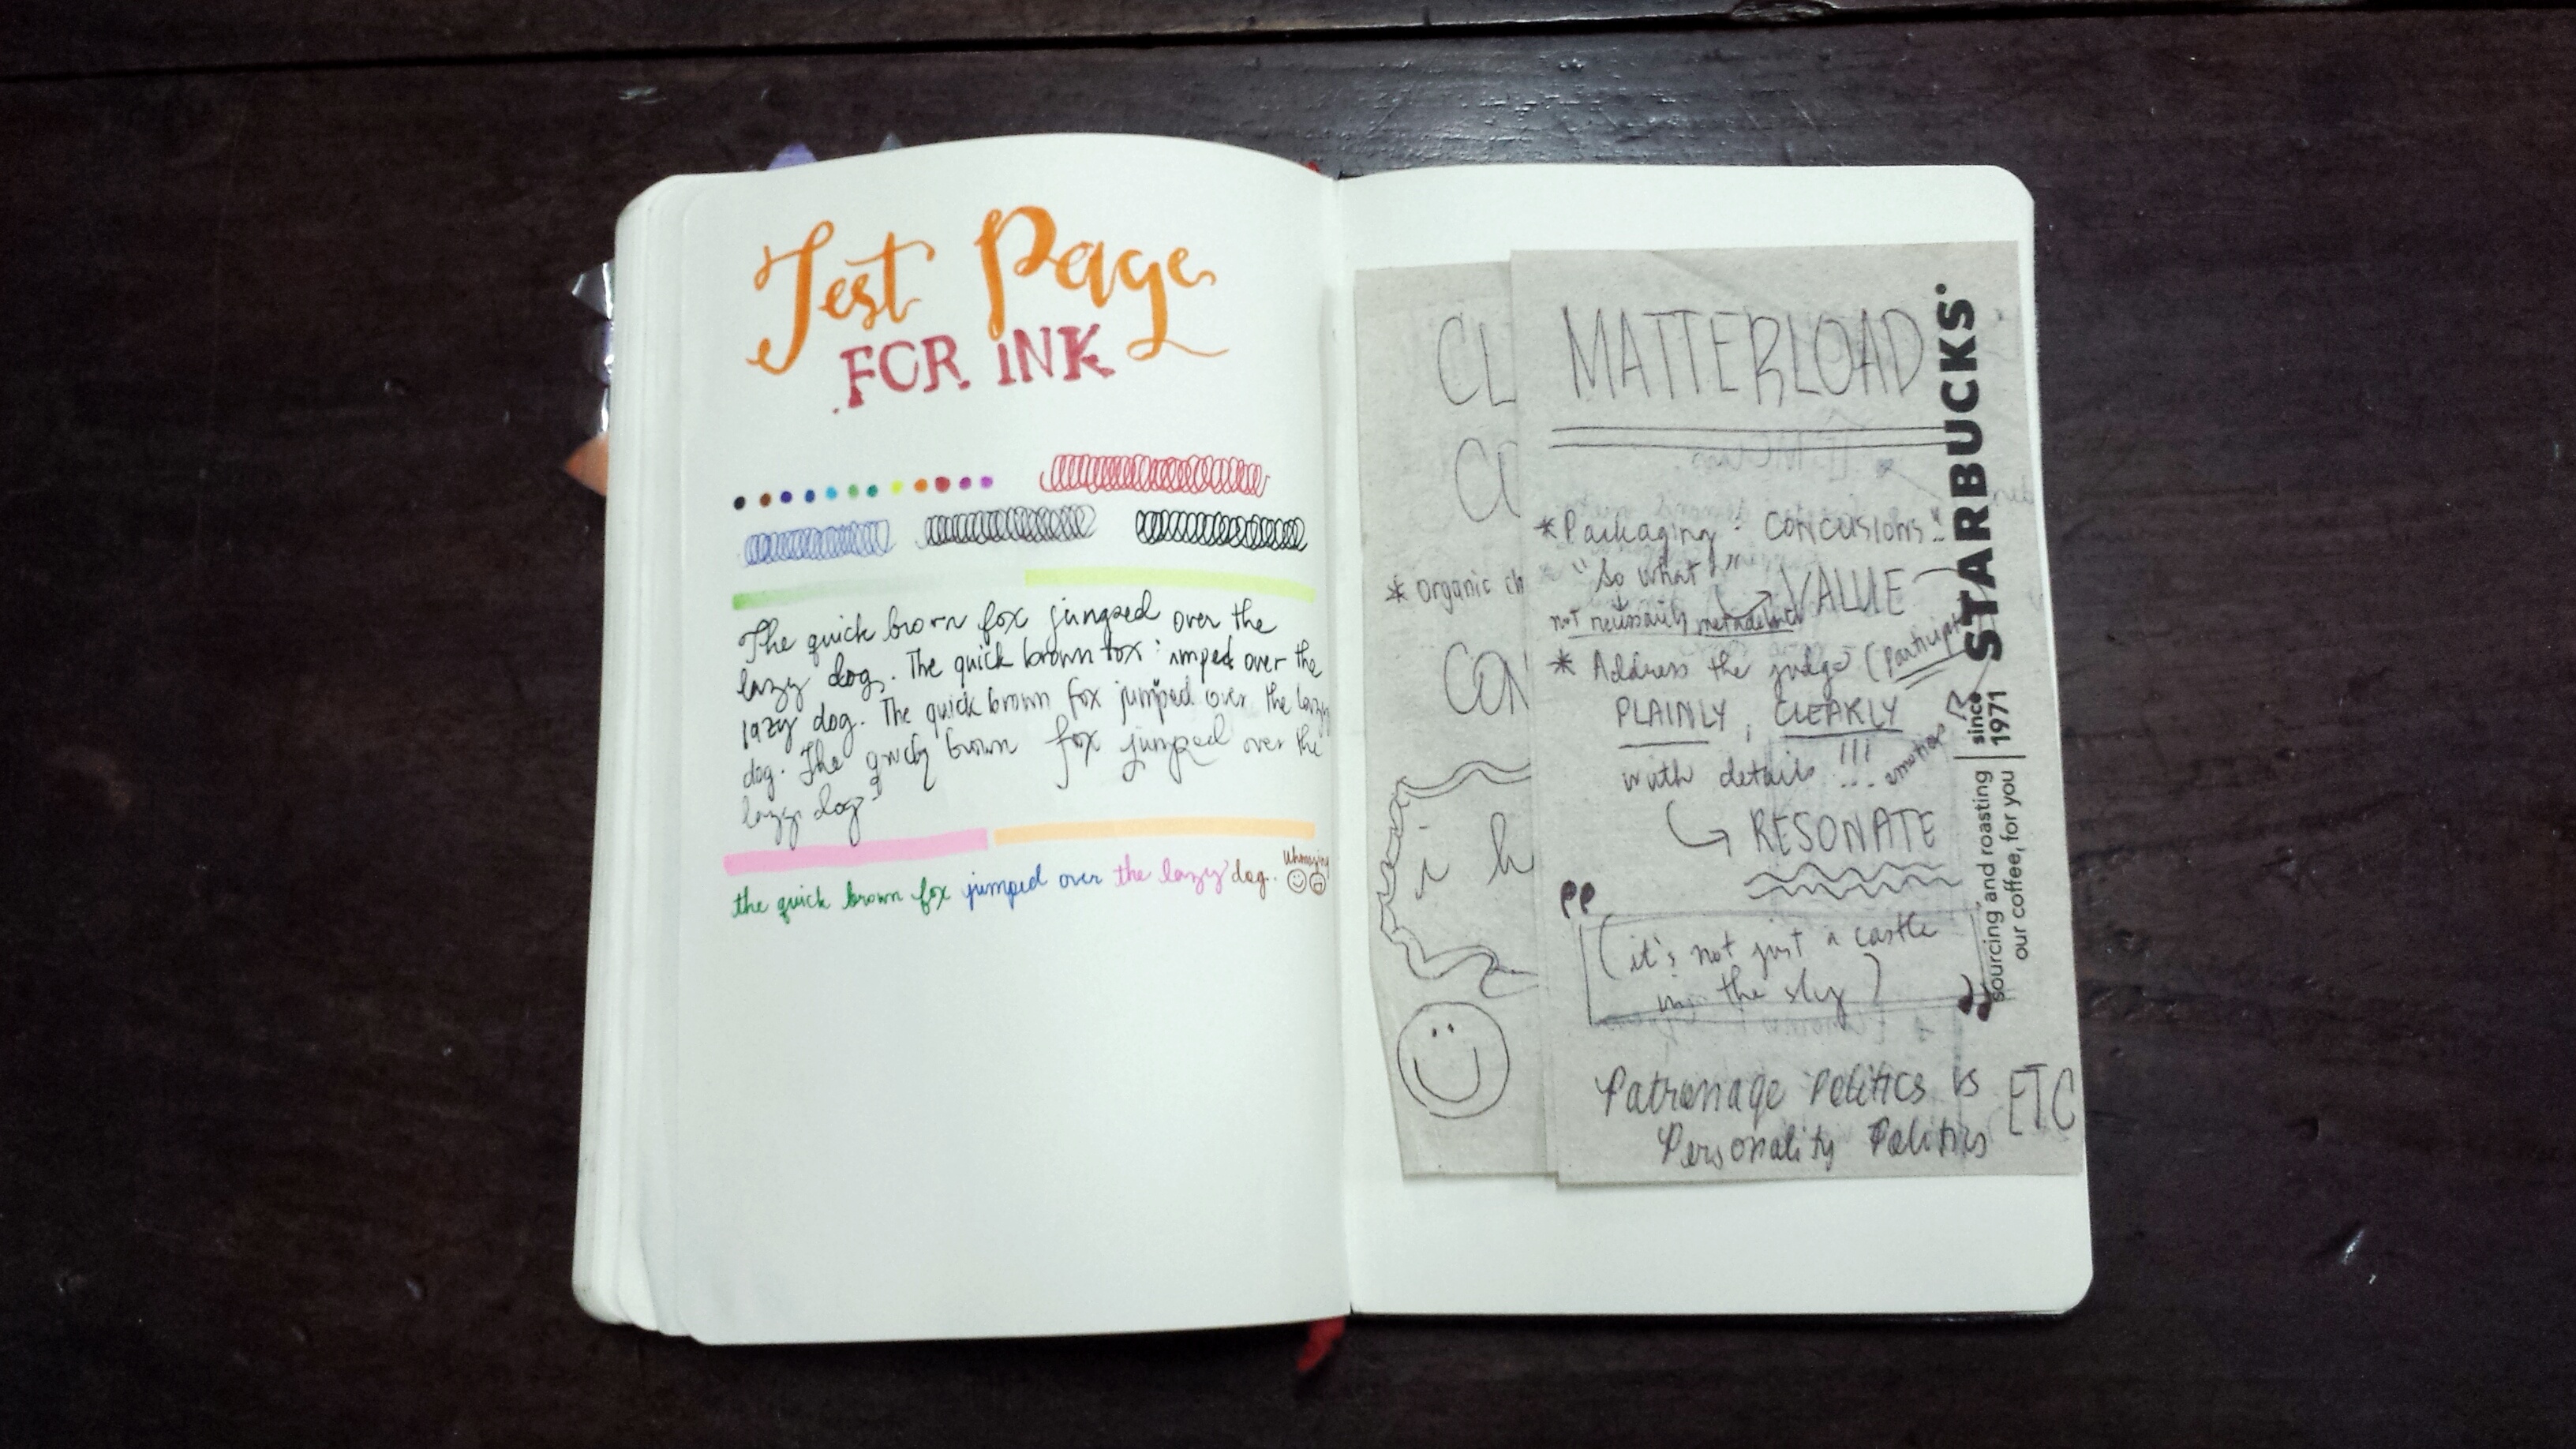 Test Page
FOR INK
The quick brown fox jumped over the
lazy dog. The quick brown fox jumped over the
lazy dog. The quick brown fox jumped over the lazy
dog. The quick brown fox jumped over the
lazy dog
the quick brown fox jumped over the lazy dog.
CL
CO
* Organic ch
CON
i h
MATTERLOAD
*Packaging : CONCUSIONS"
"So what" VALUE
not necessarily
* Address the judge (particip
PLAINLY, CLEARLY
with details !!! emotion
RESONATE
(it's not just a castle
in the sky)
Patronage Politics vs
Personality Politics
ETC
STARBUCKS
since
1971
sourcing and roasting
our coffee, for you